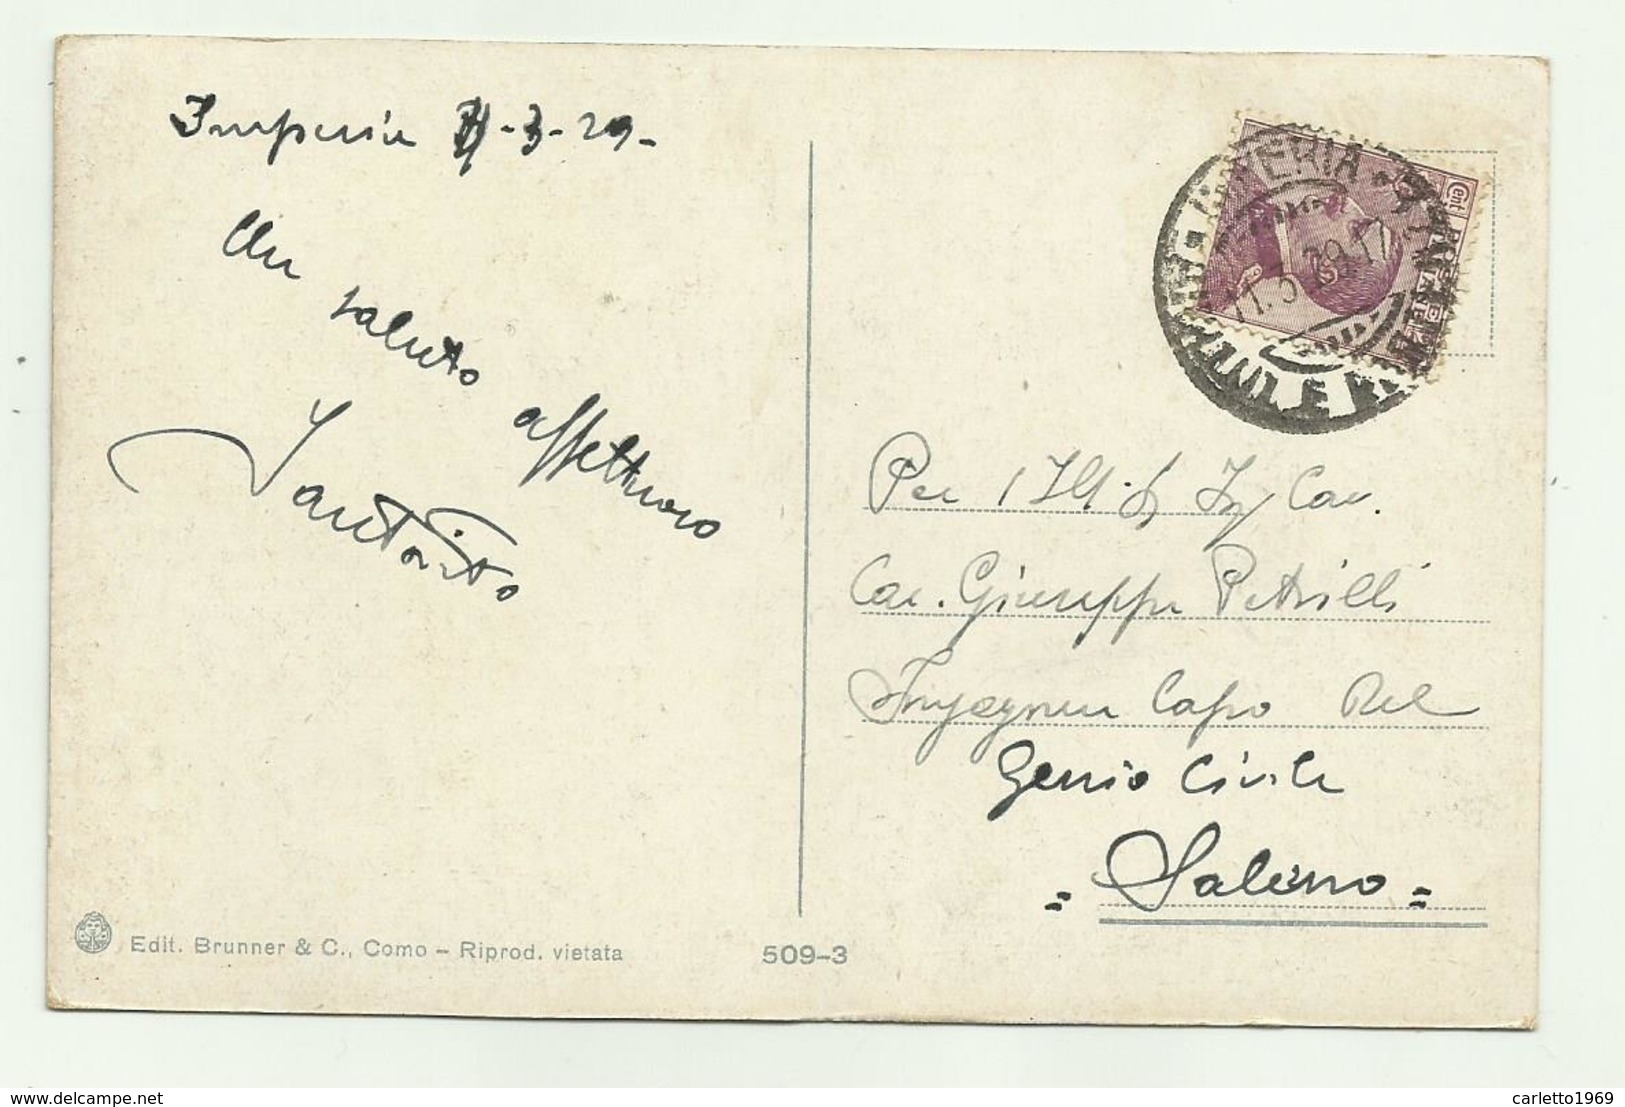 Imperia 11-3-29-
Un
saluto
affettuoso
Santorito
Cent
IMPERIA
11.3.29.17
Per l'Ill. Ing Cav.
Cav. Giuseppe Petrilli
Ingegnere Capo del
Genio Civile
= Salerno =
Edit. Brunner & C., Como – Riprod. vietata
509-3
www.delcampe.net
carletto1969